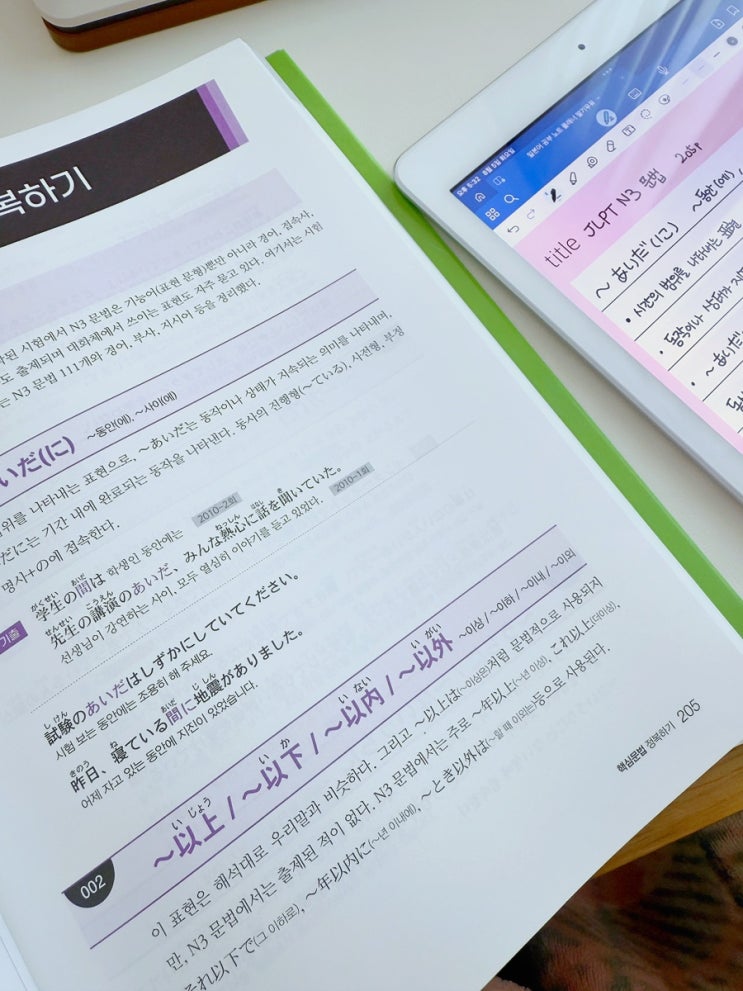 복하기
된 시험에서 N3 문법은 기능어(표현 문형)뿐만 아니라 경어, 접속사,
도 출제되며 대화체에서 쓰이는 표현도 자주 묻고 있다. 여기서는 시험
는 N3 문법 111개와 경어, 부사, 지시어 등을 정리했다.
いだ(に) ~동안(에), ~사이(에)
위를 나타내는 표현으로, ~あいだ는 동작이나 상태가 지속되는 의미를 나타내며,
だに는 기간 내에 완료되는 동작을 나타낸다. 동사의 진행형(~ている), 사전형, 부정
명사+の에 접속한다.
기출
がくせい あいだ
学生の間は 학생인 동안에는 2010-2회
せんせい こうえん ねっしん はなし き
先生の講演のあいだ、みんな熱心に話を聞いていた。 2010-1회
선생님이 강연하는 사이, 모두 열심히 이야기를 듣고 있었다.
しけん
試験のあいだはしずかにしていてください。
시험 보는 동안에는 조용히 해 주세요.
きのう ね あいだ じしん
昨日、寝ている間に地震がありました。
어제 자고 있는 동안에 지진이 있었습니다.
002
いじょう いか いない いがい
~以上 / ~以下 / ~以内 / ~以外 ~이상 / ~이하 / ~이내 / ~이외
이 표현은 해석대로 우리말과 비슷하다. 그리고 ~以上は(~이상은)처럼 문법적으로 사용되지
만, N3 문법에서는 출제된 적이 없다. N3 문법에서는 주로 ~年以上(~년 이상), これ以上(더이상),
それ以下で(그 이하로), ~年以内に(~년 이내에), ~とき以外は(~할 때 이외는)등으로 사용된다.
핵심문법 정복하기 205
오후 5:32 6월 5일
title JLPT N3 문법 205p
~ あいだ(に) ~동안(에),
• 시간의 범위를 나타내는
• 동작이나 상태가
• ~あいだ